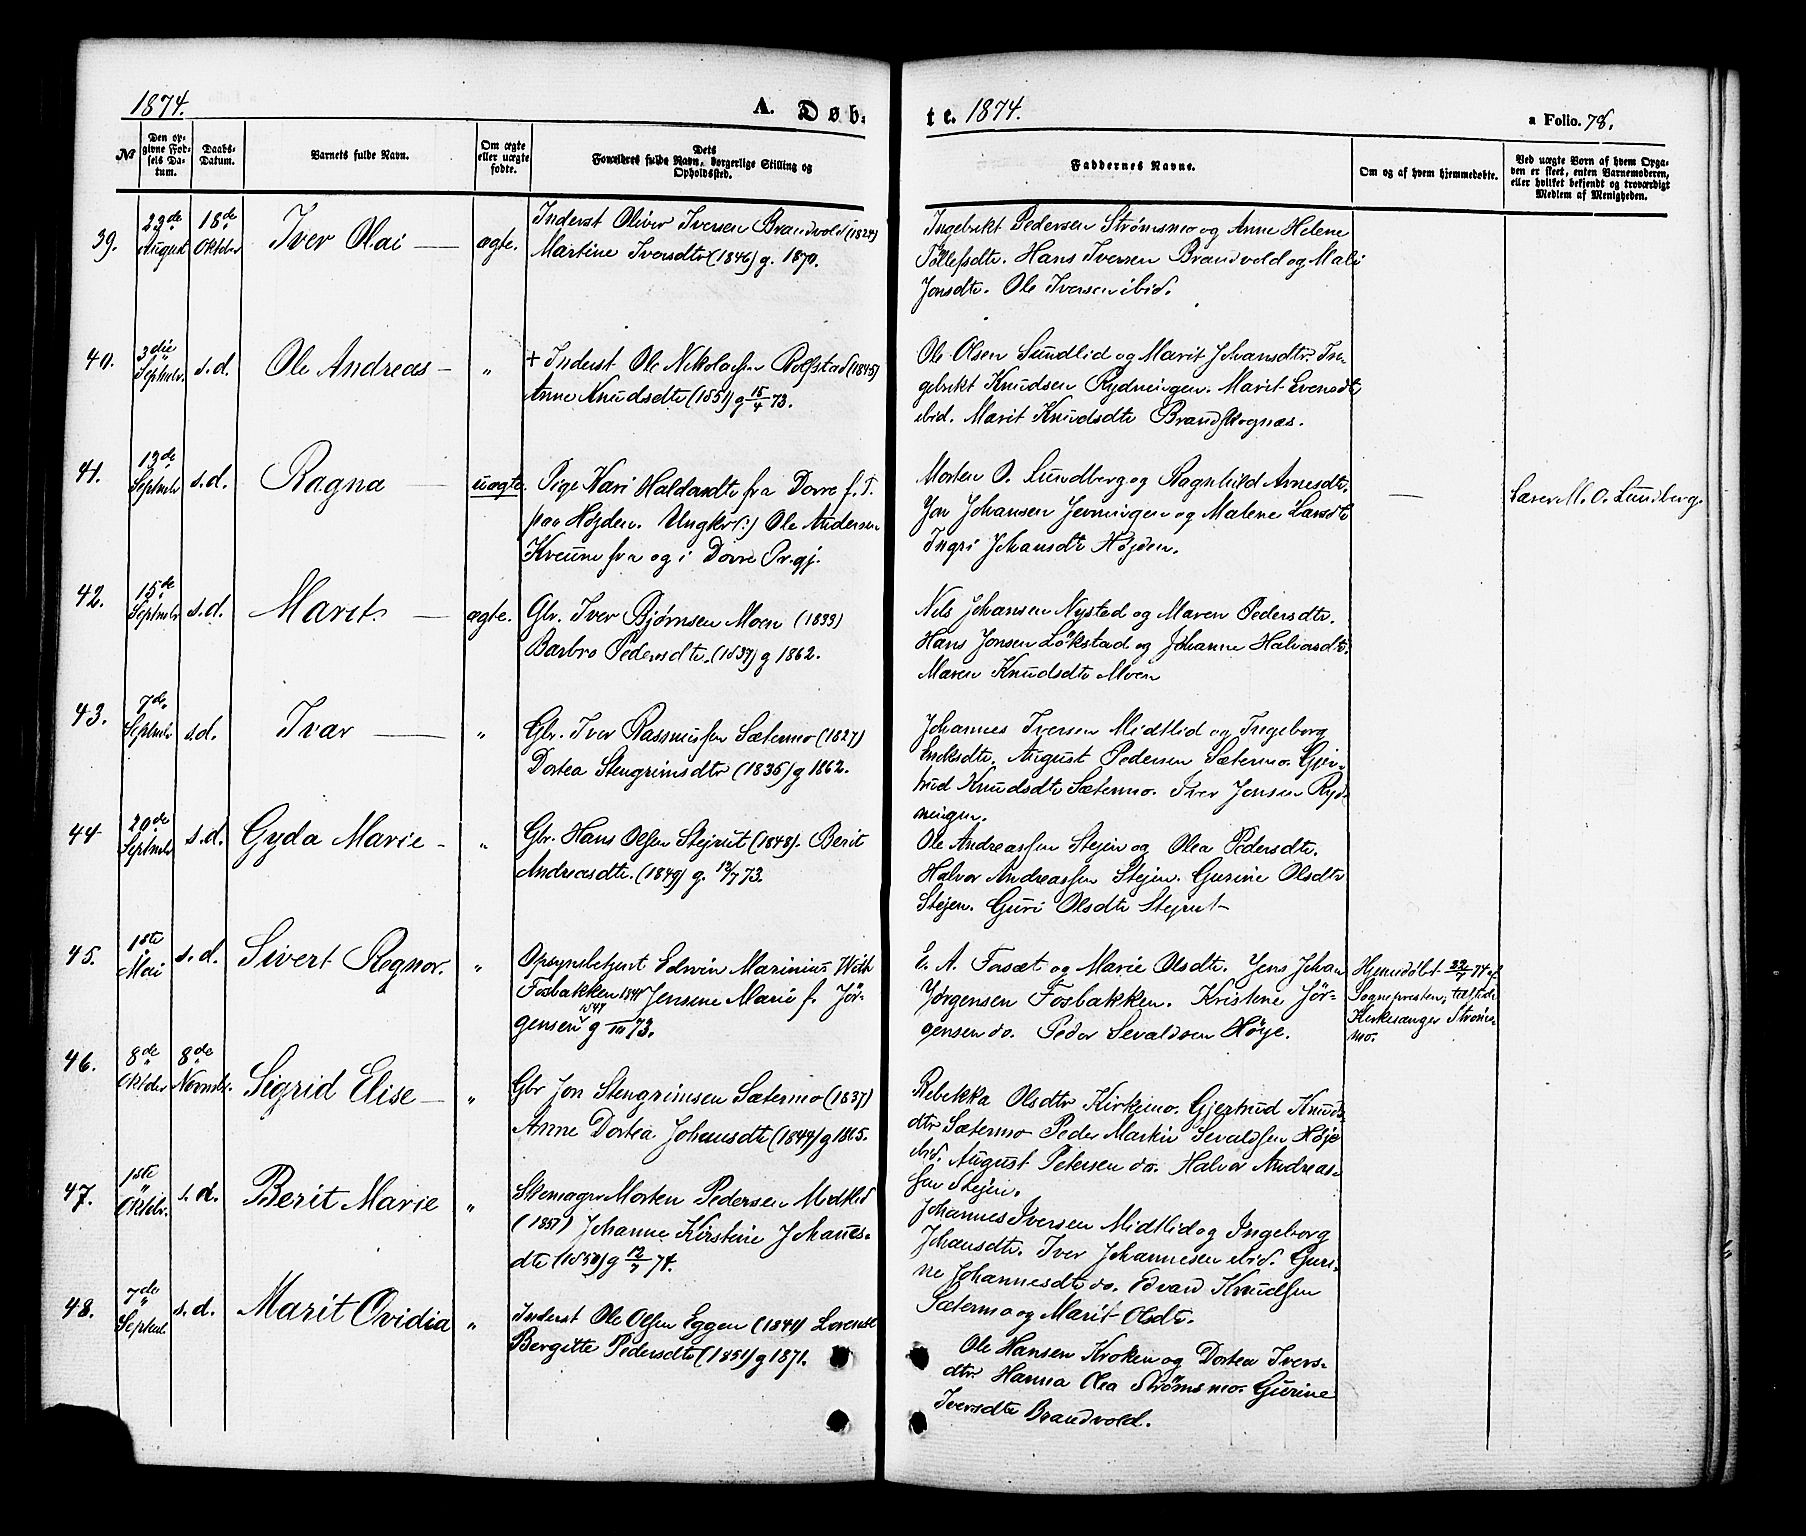 1874.
A. Døb-
te. 1874.
a Folio. 78.
No
Den op-
givne Fød-
sels Da-
tum.
Daabs-
Datum.
Barnets fulde Navn.
Om ægte
eller uægte
fødte.
Dets
Forældres fulde Navn, borgerlige Stilling og
Opholdssted.
Faddernes Navne.
Om og af hvem hjemmedøbte.
Ved uægte Born af hvem Opga-
ven er skeet, enten Barnemoderen,
eller hvilket bekjendt og troværdigt
Medlem af Menigheden.
39.
22de
August
18de
Oktober
Iver Olai —
ægte.
Inderst Oliver Iversen Brandvold (1824)
Martine Iversdtr (1846) g. 1870.
Ingebrikt Pedersen Strømsmo og Anne Helene
Tollefsdtr. Hans Iversen Brandvold og Mali
Jonsdtr. Ole Iversen ibid.
40.
3die
Septmbr
s.d.
Ole Andreas —
"
+ Inderst Ole Nikolaisen Rolfstad (1845)
Anne Knudsdtr (1851) g 15/4 73.
Ole Olsen Sundlid og Marit Johansdtr. In-
gebrikt Knudsen Rydningen. Marit Evensdtr
ibid. Marit Knudsdtr Brandskognæs.
41.
13de
Septmbr
s.d.
Ragna —
uægte.
Pige Kari Haldorsdtr fra Dovre f. T.
paa Højden. Ungkrl:) Ole Andersen
Kveune fra og i Dovre Prgj.
Morten O. Lundberg og Ragnhild Arnesdtr.
Jon Johansen Jevningen og Malene Larsdtr
Ingri Johansdtr Højden.
—
Lærer M. O. Lundberg.
42.
15de
Septmbr
s.d.
Marit. —
ægte.
Gbr. Iver Bjørnsen Moen (1833)
Barbro Pedersdtr. (1837) g 1862.
Nils Johansen Nystad og Maren Pedersdtr.
Hans Jonsen Løkstad og Johanne Halvorsdtr.
Maren Knudsdtr Moen
43.
7de
Septmbr
s.d.
Ivar —
"
Gbr. Iver Rasmussen Sætermo (1827)
Dortea Stengrimsdtr (1835) g 1862.
Johannes Iversen Midtlid og Ingeborg
Eriksdtr. August Pedersen Sætermo. Gjer-
trud Knudsdtr Sætermo. Iver Jonsen Ryd-
ningen.
44
29de
Septmbr
s.d.
Gyda Marie —
"
Gbr. Hans Olsen Stejrut (1848). Berit
Andreasdtr. (1849) g. 12/7 73.
Ole Andreassen Stejen og Olea Pedersdtr.
Halvor Andreassen Stejen. Gurine Olsdtr
Stejen. Guri Olsdtr Stejrut —
45.
1ste
Mai
s.d.
Sivert Ragnor.
"
Opsynsbetjent Edwin Marinius With
Fosbakken 1841 Jensene Marie f. Jør-
gensen g 73.
E. A. Forsæt og Marie Olsdtr. Jens Johan
Jørgensen Fosbakken. Kristine Jør-
gensen do. Peder Sevaldsen Høje.
Hjemdøbt 22/7 74 af
Sognepresten,
Kirkesanger Strøms-
mo.
46.
8de
Oktober
8de
Novmbr.
Sigrid Elise —
"
Gbr Jon Stengrimsen Sætermo (1837)
Anne Dortea Johansdtr (1849) g 1865.
Rebekka Olsdtr Kirkemo. Gjertrud Knuds-
dtr Sætermo Peder Martin Sevaldsen Høje
ibid. August Petersen do. Halvor Andreas-
sen Stejen.
47.
1ste
Oktbr.
s.d.
Berit Marie
"
Skomager Morten Pedersen Midtlid
(1851) Johanne Kirstine Johanes-
dtr (1850) g 12/7 74.
Johannes Iversen Midtlid og Ingeborg
Johansdtr. Iver Johannesen ibid. Guri-
ne Johannesdtr do. Edvard Knudsen
Sætermo og Marit Olsdtr.
48.
7de
Septmbr.
s.d.
Marit Ovidia
"
Inderst Ole Olsen Eggen (1844) Lorense
Bergitte Pedersdtr (1851) g 1871.
Ole Hansen Kroken og Dortea Ivers-
dtr Hanna Olea Strømsmo. Gurine
Iversdtr Brandvold.